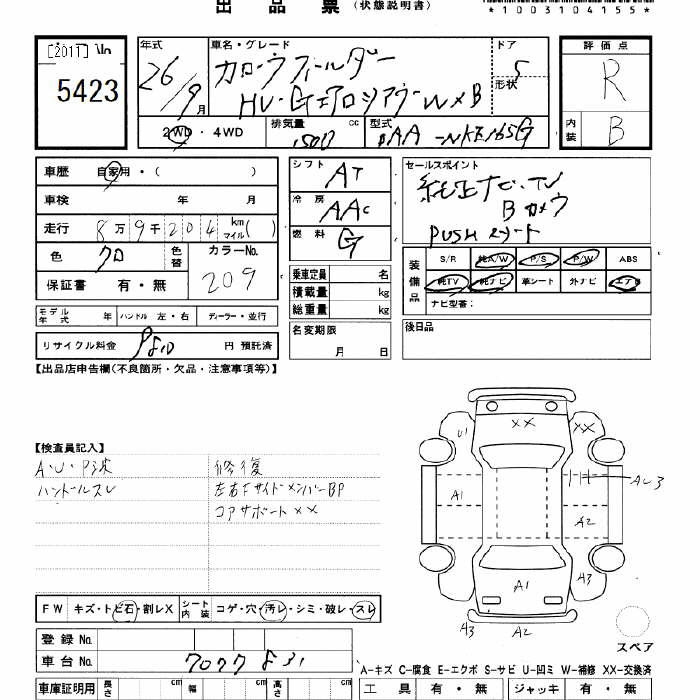 出品票 (状態説明書)
*1003104155*
[2017] 1/10
5423
年式 車名・グレード ドア 評価点
26/9月 カローラフィールダー 5 R
形状
HV・GエアロツアラーWxB
2WD・4WD 排気量 1500 cc 型式 DAA-NKE165G 内装 B
車歴 自家用・( ) シフト AT セールスポイント
純正ナビ・TV
車検 年 月 冷房 AAC Bカメラ
走行 8万9千204km マイル( ) 燃料 G PUSHスタート
色 クロ 色替 カラーNo. 209
装備品 S/R 純A/W P/S P/W ABS
乗車定員 名 純TV 純ナビ 革シート 外ナビ エアB
保証書 有・無 積載量 kg ナビ型番:
モデル年式 年 ハンドル 左・右 ディーラー・並行 総重量 kg
リサイクル料金 9810 円 預託済 名変期限 月 日 後日品
【出品店申告欄(不良箇所・欠品・注意事項等)】
【検査員記入】
A・U・P波 修復
ハンドルスレ 左右FサイドメンバーBP
コアサポートXX
U1 XX XX
A1 A2 AU3
A1 A3
A3 A2
スペア
FW キズ・トビ石・割レX シート内装 コゲ・穴・汚レ・シミ・破レ・スレ
登録No.
車台No. 7077831
A-キズ C-腐食 E-エクボ S-サビ U-凹ミ W-補修 XX-交換済
車庫証明用 長さ cm 幅 cm 高さ cm 工具 有・無 ジャッキ 有・無